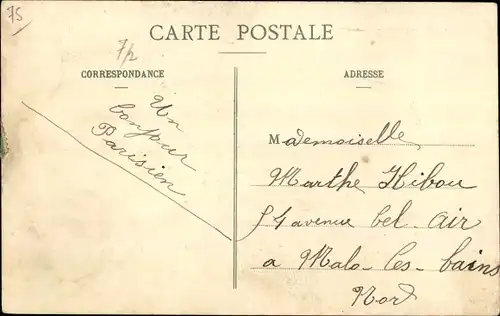 75
CARTE POSTALE
7/2
CORRESPONDANCE
ADRESSE
Un
bonjour
Parisien
Mademoiselle
Marthe Hibou
51 avenue bel air
a Malo-les-bains
Nord